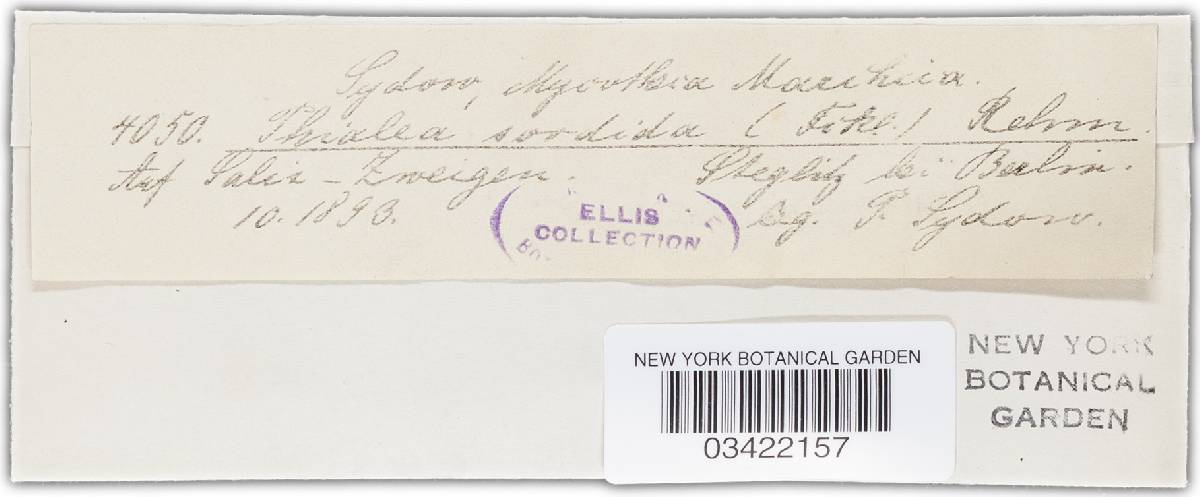 Sydow, Mycotheca Marchica.
4050. Phialea sordida (Fckl.) Rehm.
Auf Salix-Zweigen. Steglitz bei Berlin.
10. 1893. leg. P. Sydow.
ELLIS
COLLECTION
NEW YORK BOTANICAL GARDEN
03422157
NEW YORK
BOTANICAL
GARDEN